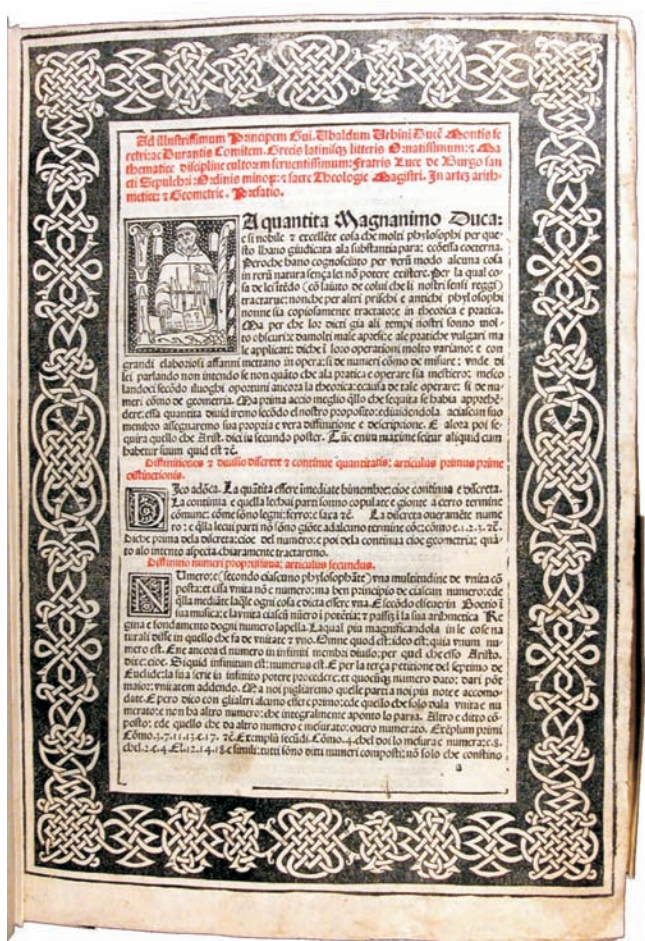 Ad illustrissimum Principem Gui. Ubaldum Urbini Ducē Montis fe
retri: ac Durantis Comitem. Grecis latinisq; litteris Ornatissimum: ⁊ Ma
thematice discipline cultorem feruentissimum: Fratris Luce de Burgo san
cti Sepulchri: Ordinis minoꝝ: ⁊ sacre Theologie Magistri. In artē arith-
meticę ⁊ Geometrie. Prefatio.
LA quantita Magnanimo Duca:
e si nobile ⁊ excellēte cosa che molti phylosophi per que
sto lhano giudicata ala substantia para: ecōessa coeterna.
Peroche hano cognosciuto per verū modo alcuna cosa
in rerū natura sença lei nō potere existere. Per la qual co
sa de lei itēdo (cō laiuto de colui che li nostri sensi reggi)
tractarue: nonche per altri prischi e antichi phylosophi
nonne sia copiosamente tractato: e in theorica e pratica.
Ma per che lor dicti gia ali tempi nostri sonno mol-
to obscuri: e da molti male apresi: e ale pratiche vulgari ma
le applicati: diche i loro operationi molto variano: e con
grandi elaboriosi affanni mettano in opera: si de numeri cōmo de misure: vnde de
lei parlando non intendo se non quāto che ala pratica e operare sia mestiero: mesco
landoci secōdo iluoghi oportuni ancora la theorica: e causa de tale operare: si de nu-
meri cōmo de geometria. Ma prima acio meglio q̄llo che sequita se habia apprehē-
dere: essa quantita diuideremo secōdo el nostro proposito: e diuidendola a ciascun suo
membro assegnaremo sua propria e vera diffinitione e descriptione. E alora poi se-
quira quello che Arist. dici in secundo poster. Tūc enim maxime scitur aliquid cum
habetur suum quid est ⁊c̄.
Diffinitiones ⁊ diuisio discrete ⁊ continue quantitatis: articulus primus prime
distinctionis.
DIco adōca. La quātita essere īmediate bimembre: cioe continua e discreta.
La continua e quella lecui parti sonno copulate e gionte a certo termine
comune: cōme sono legni: ferro: e saxa ⁊c̄. La discreta oueramēte nume
ro: e q̄lla lecui parti nō sōno giōte ad alcuno termine cōe: cōmo e.1.2.3.⁊c̄.
Diche prima dela discreta: cioe del numero: e poi dela continua cioe geometria: quā-
to alo intento aspecta chiaramente tractaremo.
Diffinitio numeri propriissima: articulus secundus.
NUmero: e (secondo ciascuno phylosophāte) vna multitudine de vnita cō
posta: et essa vnita nō e numero: ma ben principio de ciascun numero: ede
q̄lla mediāte laq̄le ogni cosa e dicta essere vna. E secōdo el seuerin Boetio ī
sua musica: e la vnita ciascū nūero ī potētia: ⁊ passi3 ī la sua arithmetica Re
gina e fondamento dogni numero lapella. Laqual piu magnificandola in le cose na
turali disse in quello che fa de vnitate ⁊ vno. Omne quod est: ideo est: quia vnum nu-
mero est. Ene ancora el numero in infiniti membri diuiso: per quel che esso Aristo.
dixe: cioe. Si quid infinitum est: numerus est. E per la terça petitione del septimo de
Euclide: la sua serie in infinito potere procedere: et quocūq; numero dato: dari pōt
maior: vnitatem addendo. Ma noi pigliaremo quelle parti a noi piu note e accomo-
date. E pero dico con gli altri alcuno essere primo: ede quello che solo dala vnita e nu
merato: e non ha altro numero: che integralmente aponto lo parta. Altro e ditto cō-
posto: ede quello che da altro numero e mesurato: ouero numerato. Exēplum primi
Cōmo.3.7.11.13.e.17. ⁊c̄. Exemplū secūdi. Cōmo.4.chel doi lo mesura e numera: e.8.
chel.2.e.4. El.12.14.18.e simili: tutti sōno ditti numeri composti: nō solo che constino
a